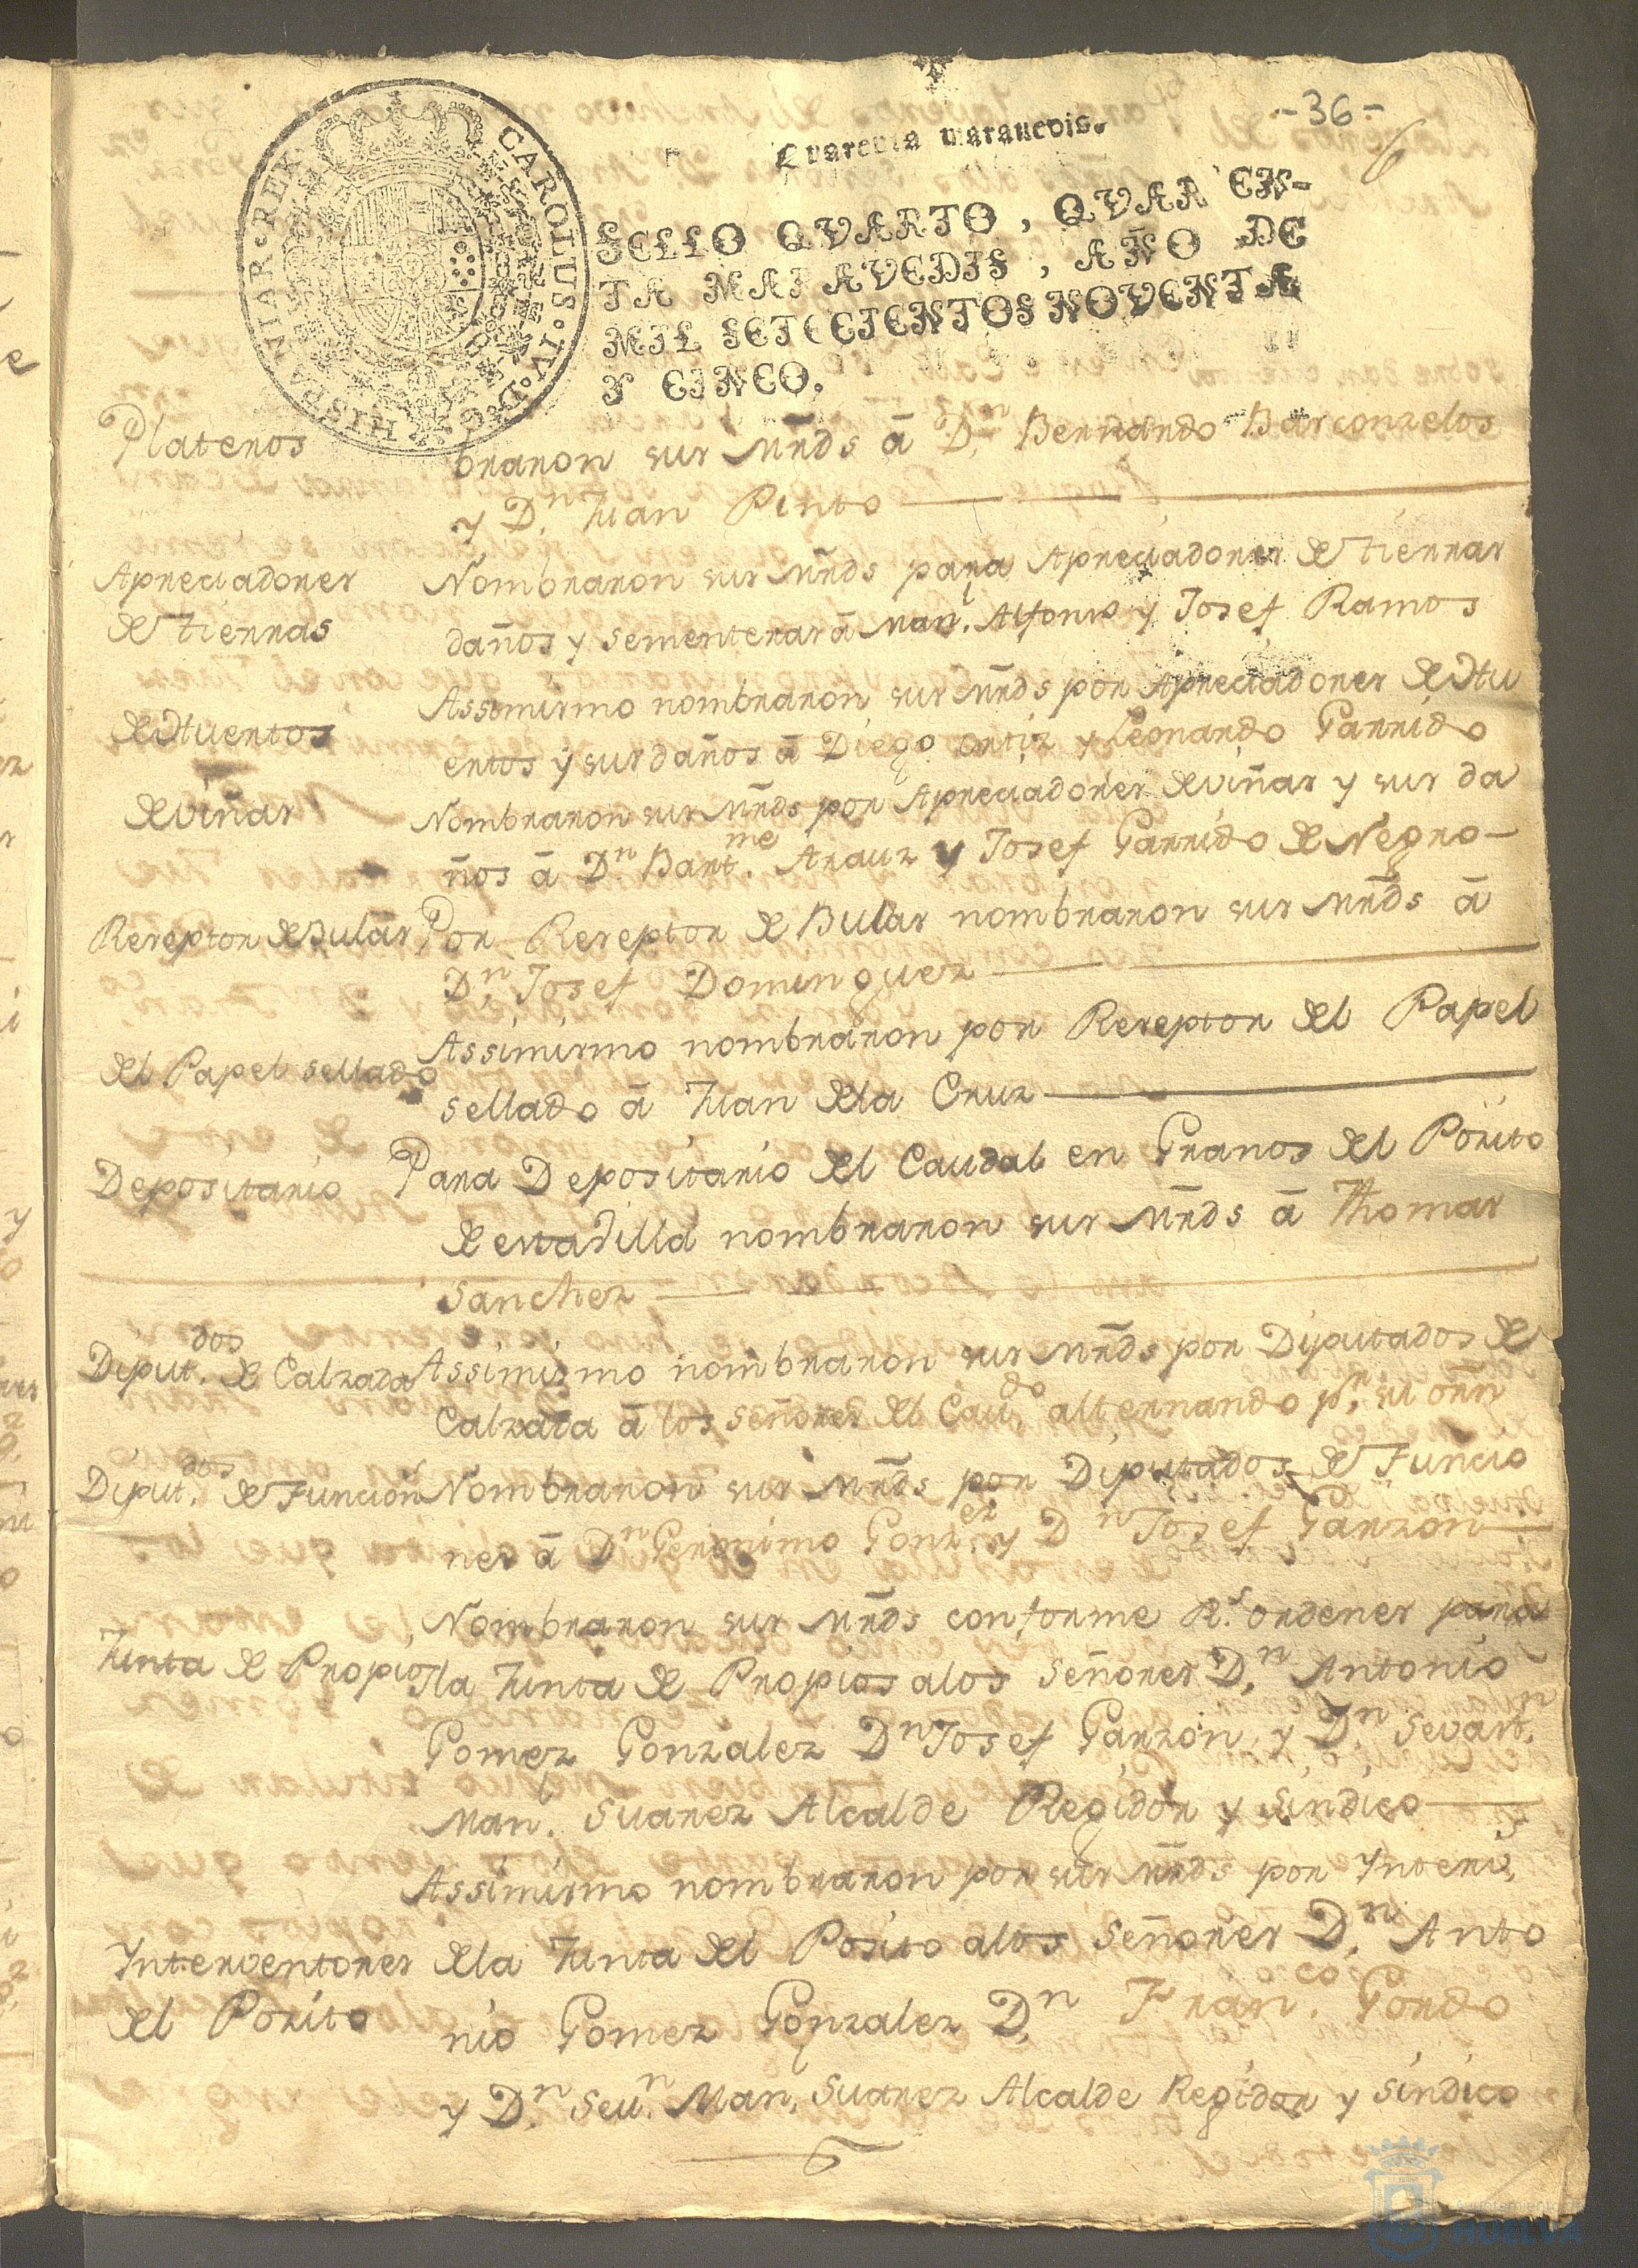 -36-
6
Quarenta maravedis.
SELLO QVARTO, QVAREN-
TA MARAVEDIS, AÑO DE
MIL SETECIENTOS NOVENTA
Y CINCO.
CAROLUS·IV·D·G·HISPANIAR·REX
Plateros
braron sus mr̃ds â Dn. Bernardo Barconzelos
y Dn. Juan Pinto
Apreciadores
de tierras
Nombraron sus mr̃ds para Apreciadores de tierras
daños y sementeras â Manl. Alfonso y Josef Ramos
de Huertos
Assimismo nombraron sus mr̃ds por Apreciadores de Hu
ertos y sus daños â Diego Ortiz y Leonardo Garrido
de viñas
Nombraron sus mr̃ds por Apreciadores de viñas y sus da
ños â Dn. Bartme. Arauz y Josef Garrido de Negro
Rezeptor de Bulas
Por Rezeptor de Bulas nombraron sus mr̃ds â
Dn. Josef Dominguez
del Papel sellado
Assimismo nombraron por Rezeptor del Papel
sellado â Juan de la Cruz
Depositario
Para Depositario del Caudal en Granos del Pozito
de esta villa nombraron sus mr̃ds â Thomas
Sanchez
Diputdos. de Calzada
Assimismo nombraron sus mr̃ds por Diputados de
Calzada â los señores del Cavdo. alternando pr. su orñ
Diputdos. de Funcions
Nombraron sus mr̃ds por Diputados de Funcio
nes â Dn Geronimo Gonzez. y Dn Josef Garzon
Junta de Propios
Nombraron sus mr̃ds conforme Rs. ordenes para
la Junta de Propios a los Señores Dn. Antonio
Gomez Gonzalez Dn Josef Garzon, y Dn. Sevastn.
Manl. Suarez Alcalde Regidor y Sindico
Interventores
del Pozito
Assimismo nombraron por sus mr̃ds por Yntervs.
de la Junta del Posito a los Señores Dn. Anto
nio Gomez Gonzalez Dn. Franco. Gordo
y Dn. Sevn. Manl. Suarez Alcalde Regidor y Sindico
Ayuntamiento de
HUELVA